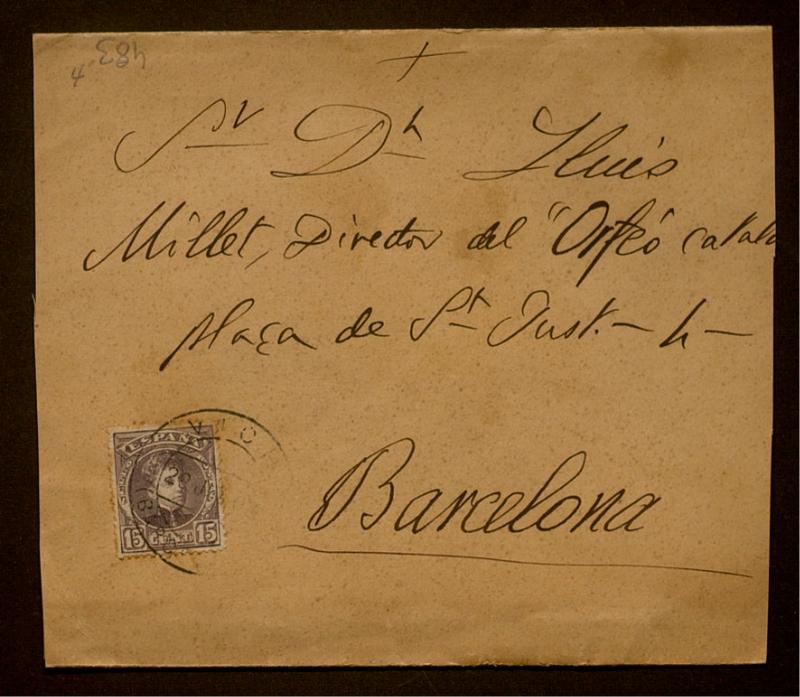 4.483
+
Sr Dn Lluís
Millet, Director del "Orfeó català
plaça de St Just. – 4 –
Barcelona
ESPAÑA
15 CENTS 15